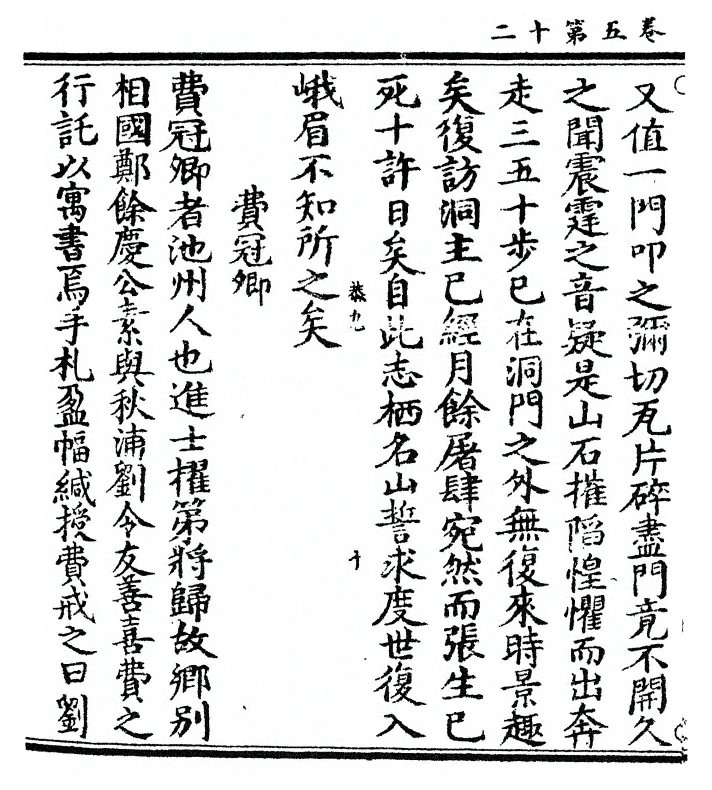 卷五第十二
又值一門叩之彌切瓦片碎盡門竟不開久
之聞震霆之音疑是山石摧陷惶懼而出奔
走三五十步已在洞門之外無復來時景趣
矣復訪洞主已經月餘屠肆宛然而張生已
死十許日矣自此志栖名山誓求度世復入
恭九
十
峨眉不知所之矣
費冠卿
費冠卿者池州人也進士擢第將歸故鄉別
相國鄭餘慶公素與秋浦劉令友善喜費之
行託以寓書焉手札盈幅緘授費戒之曰劉